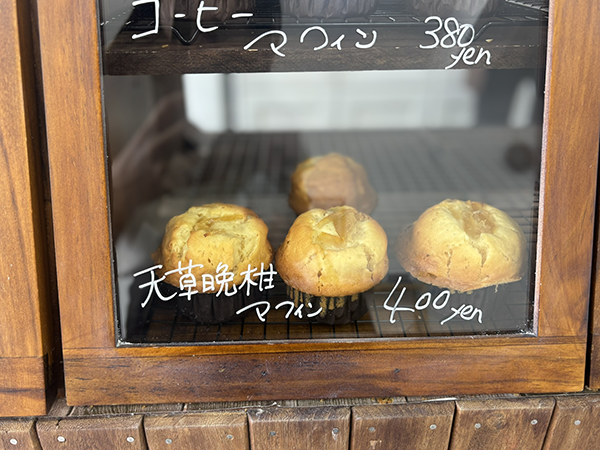 コーヒー
マフィン 380 yen
天草晩柑
マフィン 400 yen